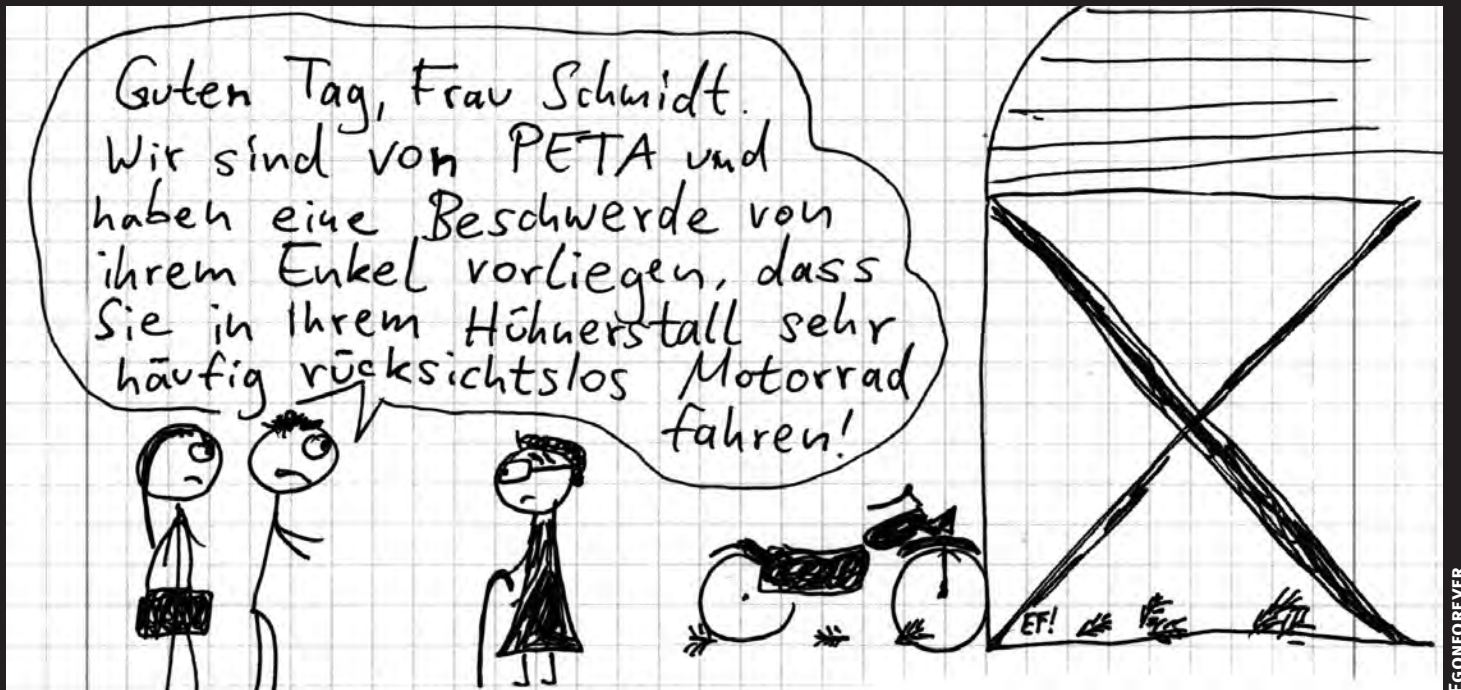 Guten Tag, Frau Schmidt.
Wir sind von PETA und
haben eine Beschwerde von
ihrem Enkel vorliegen, dass
Sie in Ihrem Hühnerstall sehr
häufig rücksichtslos Motorrad
fahren!
EF!
EGONFOREVER